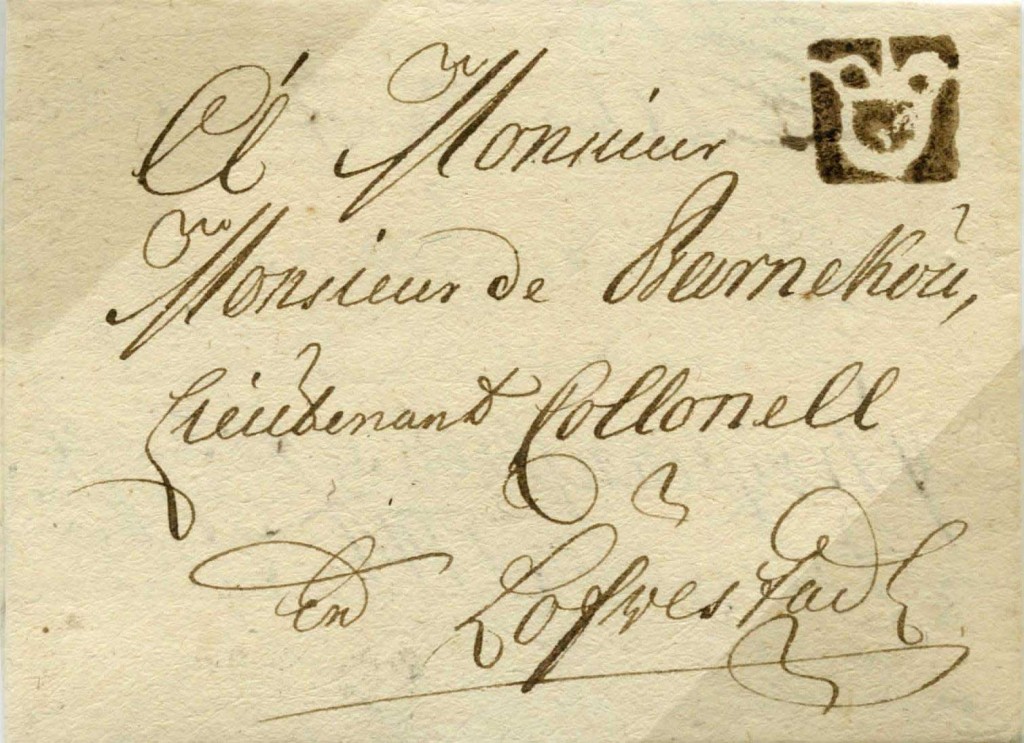 A Monsieur
Monsieur de Barnekou,
Lieutenant Collonell
en Löfvestad